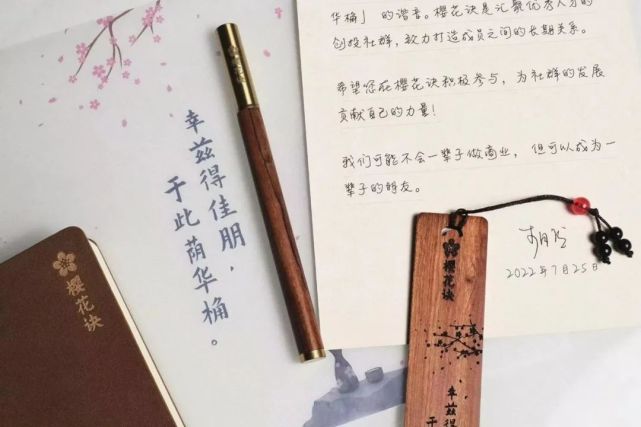 华桷」的谐音。樱花诀是汇聚优秀人才的
创投社群，致力打造成员之间的长期关系。
希望您在樱花诀积极参与，为社群的发展
贡献自己的力量！
我们可能不会一辈子做商业，但可以成为一
辈子的朋友。
2022年7月25日
幸兹得佳朋，
于此荫华桷。
樱花诀
樱花诀
幸兹得
于